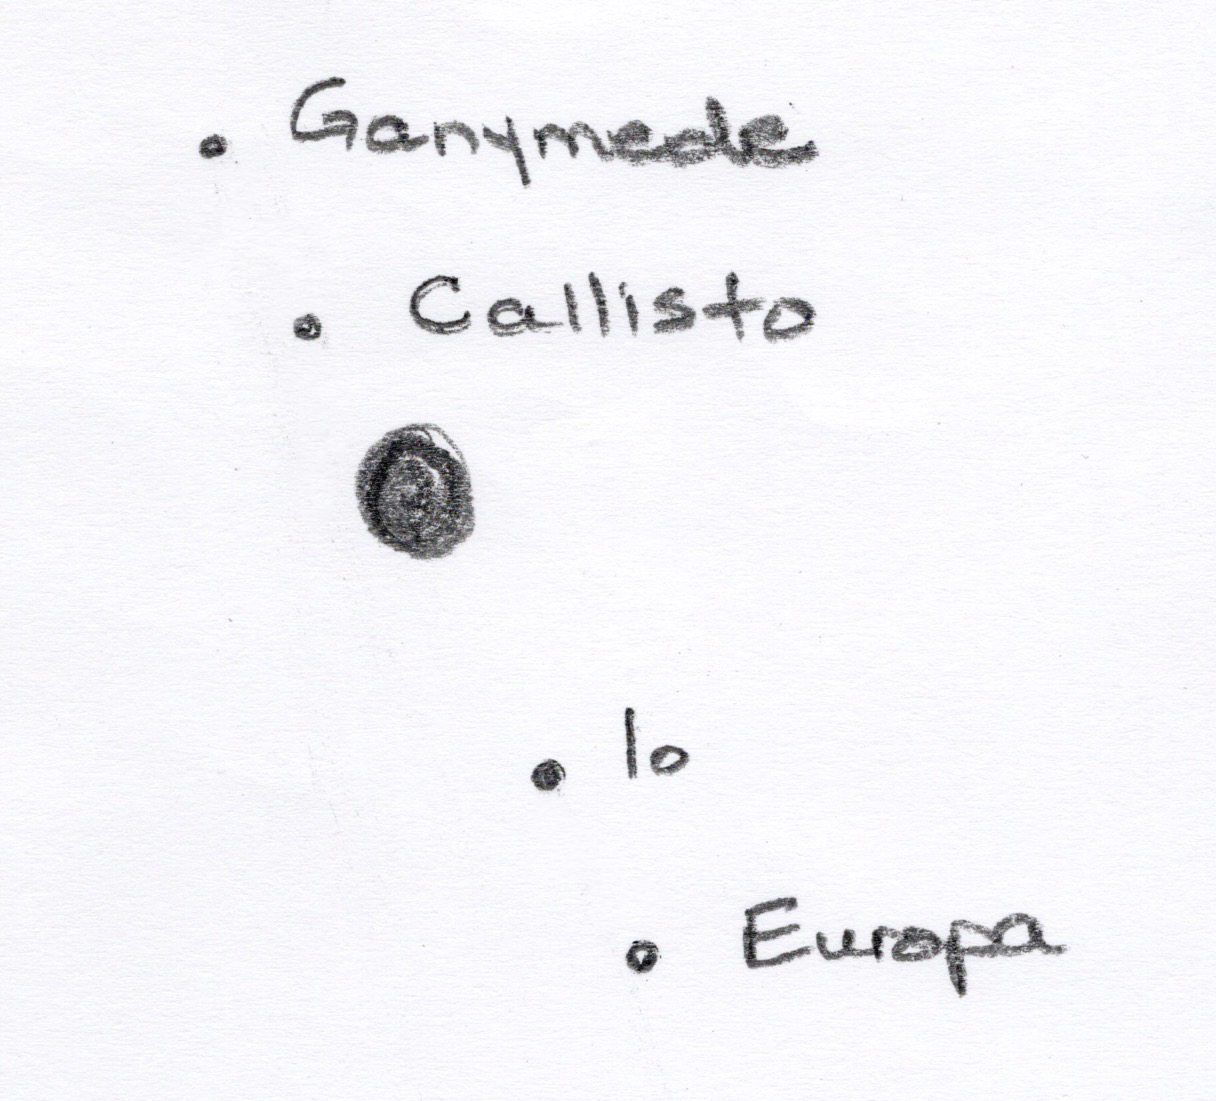 Ganymede
Callisto
Io
Europa